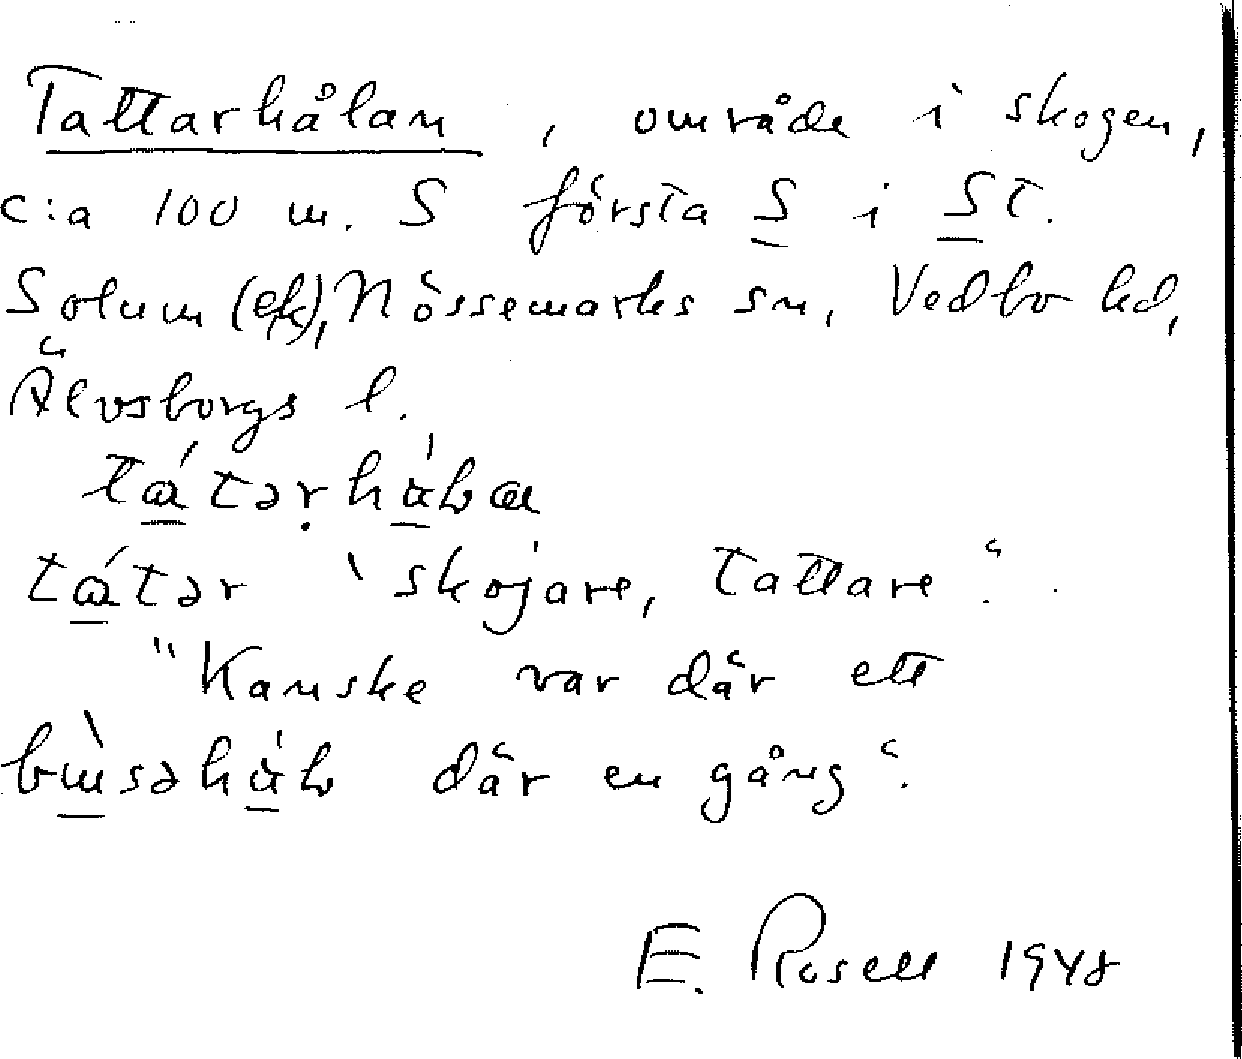 Tattarhålan, område i skogen,
c:a 100 m. S första S i St.
Solum (ek), Nössemarks sn, Vedbo hd,
Älvsborgs l.
tátərhålɷ
tátər 'skojare, tattare'.
"Kanske var där ett
bùsəhål där en gång".
E. Rosell 1948